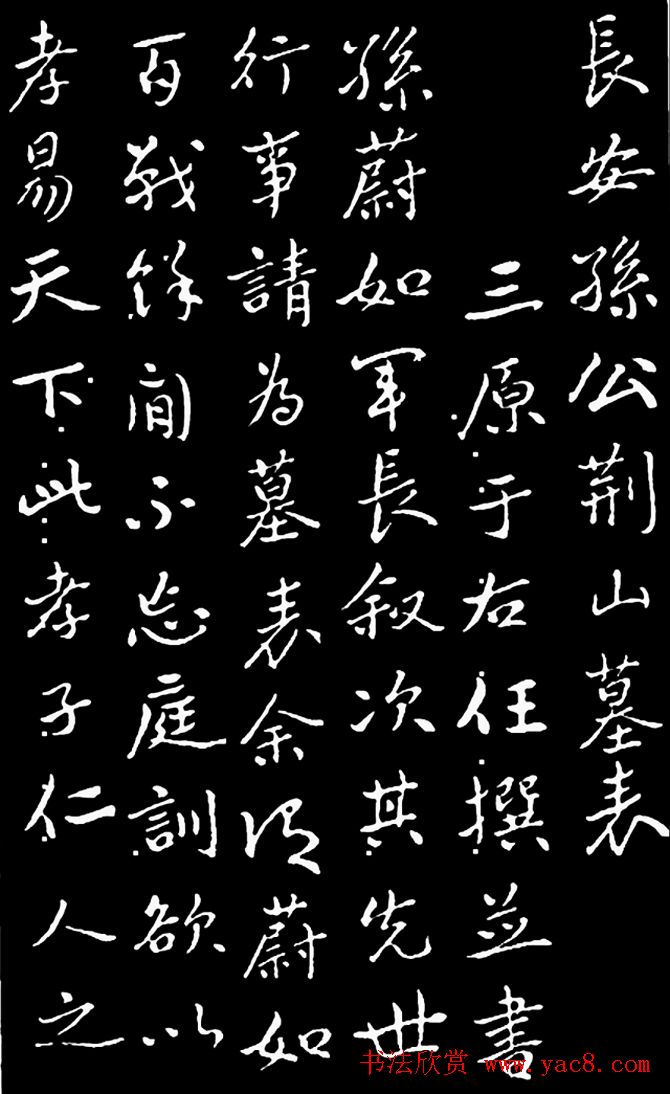 長安孫公荆山墓表
三原于右任撰並書
孫蔚如軍長叙次其先世
行事請為墓表余謂蔚如
百戰餘間不忘庭訓欲以
孝易天下此孝子仁人之
书法欣赏 www.yac8.com